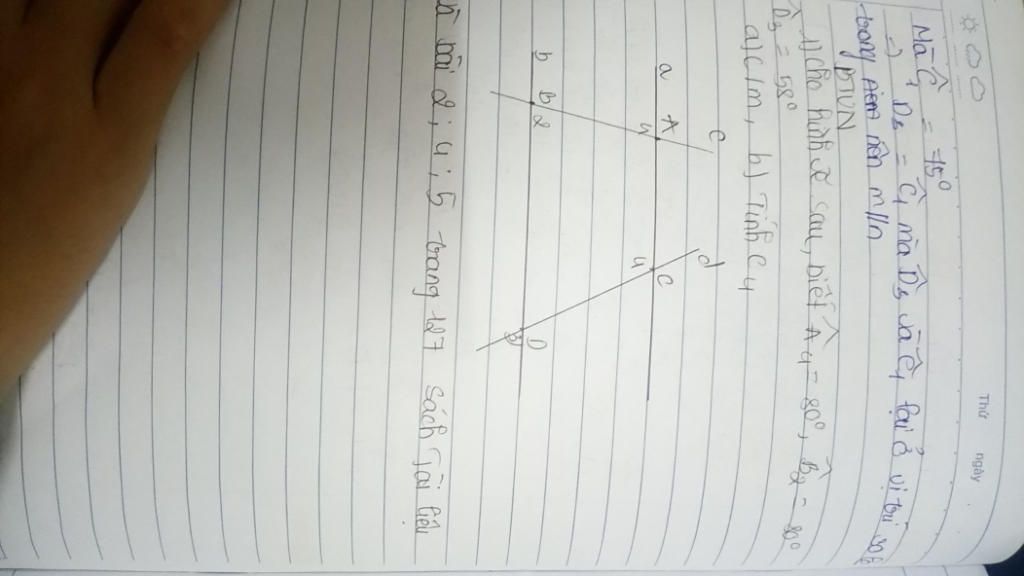 Thứ ngày
Mà Ĉ₁ = 75⁰
=> D̂₃ = Ĉ₁ mà D̂₃ và Ĉ₁ lại ở vị trí so le
trong nên m//n
BTVN
1) cho hình vẽ sau, biết Â₄ = 80⁰, B̂₂ = 80⁰
D̂₃ = 58⁰
a) C/m, b) Tính C₄
c d
a A C
4 4
b B D
2 3
bài 2; 4; 5 trang 127 sách Tài liệu